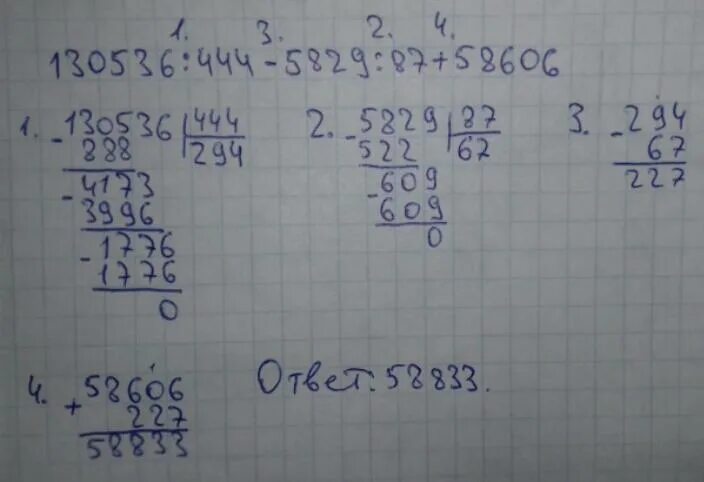 1. 3. 2. 4.
130536:444-5829:87+58606
1. -130536 444
888 294
-4173
3996
-1776
1776
0
2. -5829 87
522 67
-609
609
0
3. -294
67
227
4. 1
+58606
227
58833
Ответ: 58833.